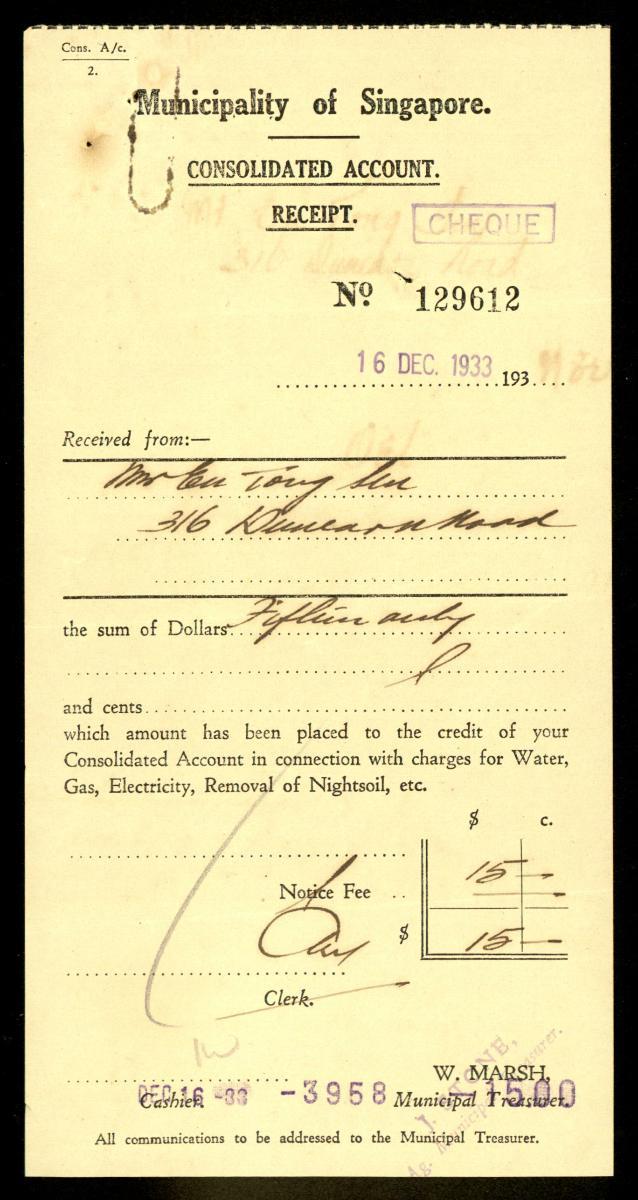 Cons. A/c.
2.
Municipality of Singapore.
CONSOLIDATED ACCOUNT.
RECEIPT.
CHEQUE
No. 129612
16 DEC. 1933 193
Received from:—
Mr Eu Tong Sen
316 Dunearn Road
the sum of Dollars Fifteen only
and cents
which amount has been placed to the credit of your
Consolidated Account in connection with charges for Water,
Gas, Electricity, Removal of Nightsoil, etc.
$ c.
15 —
Notice Fee
$ 15 —
Clerk.
J. STONE,
Ag. Municipal Treasurer.
W. MARSH,
DEC 16 -33 -3958 -1500
Cashier. Municipal Treasurer.
All communications to be addressed to the Municipal Treasurer.